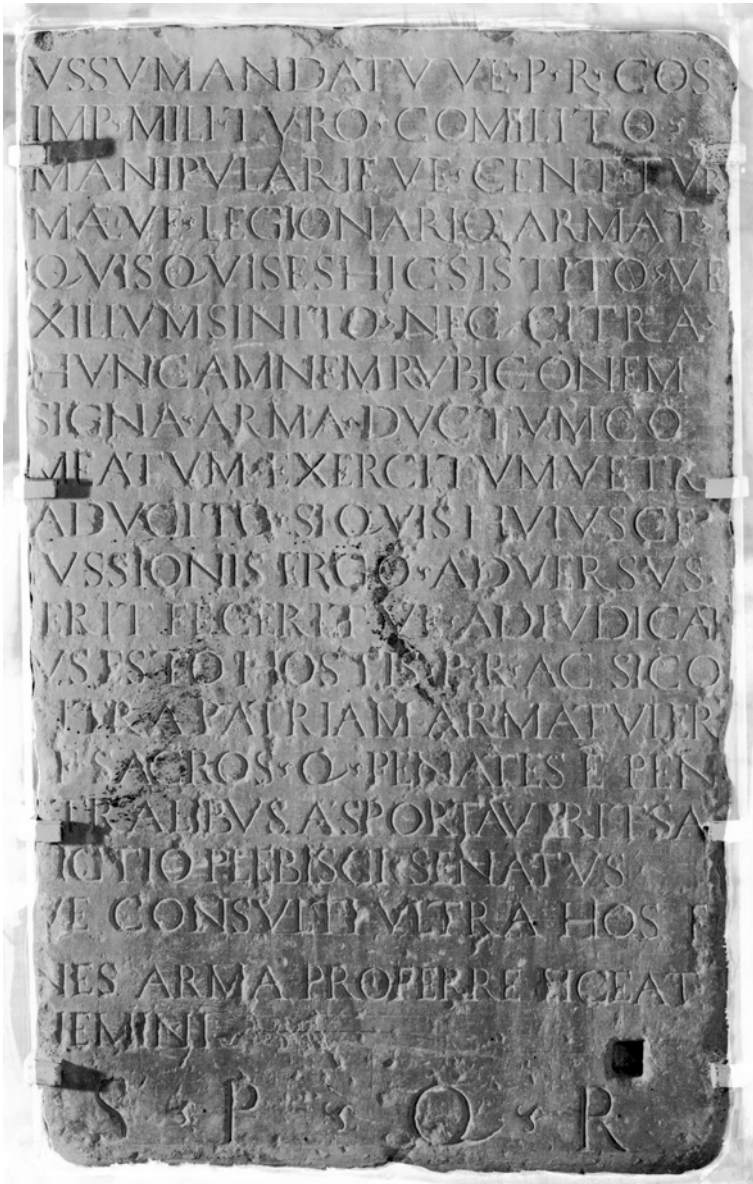 VSSV MANDATV VE·P·R·COS
IMP·MILI·TVRO·COMILITO
MANIPVLARIE VE·CENT·TVR
MAE VE·LEGIONARIO·ARMAT·
QVISQVIS ES HIC SISTITO·VE
XILLVM SINITO·NEC CITRA·
HVNC AMNEM RVBICONEM
SIGNA·ARMA·DVCTVM CO
MEATVM·EXERCITVM VE TR
ADVCITO·SI QVIS HVIVSCE
VSSIONIS ERGO·ADVERSVS
IERIT FECERIT VE·ADIVDICAT
VS ESTO HOSTIS·P·R·AC SI CO
NTRA PATRIAM ARMA TVLER
IT SACROS·Q·PENATES E PEN
TRALIBVS ASPORTAVERIT SA
NCTIO PLEBISCI·SENATVS
VE CONSVLTI VLTRA HOS F
NES ARMA PROFERRE LICEAT
NEMINI
S·P·Q·R